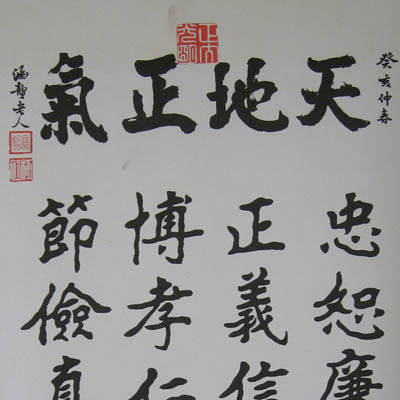 癸亥仲春
天地正氣
忠恕廉
正義信
博孝仁
節儉真
涵靜老人